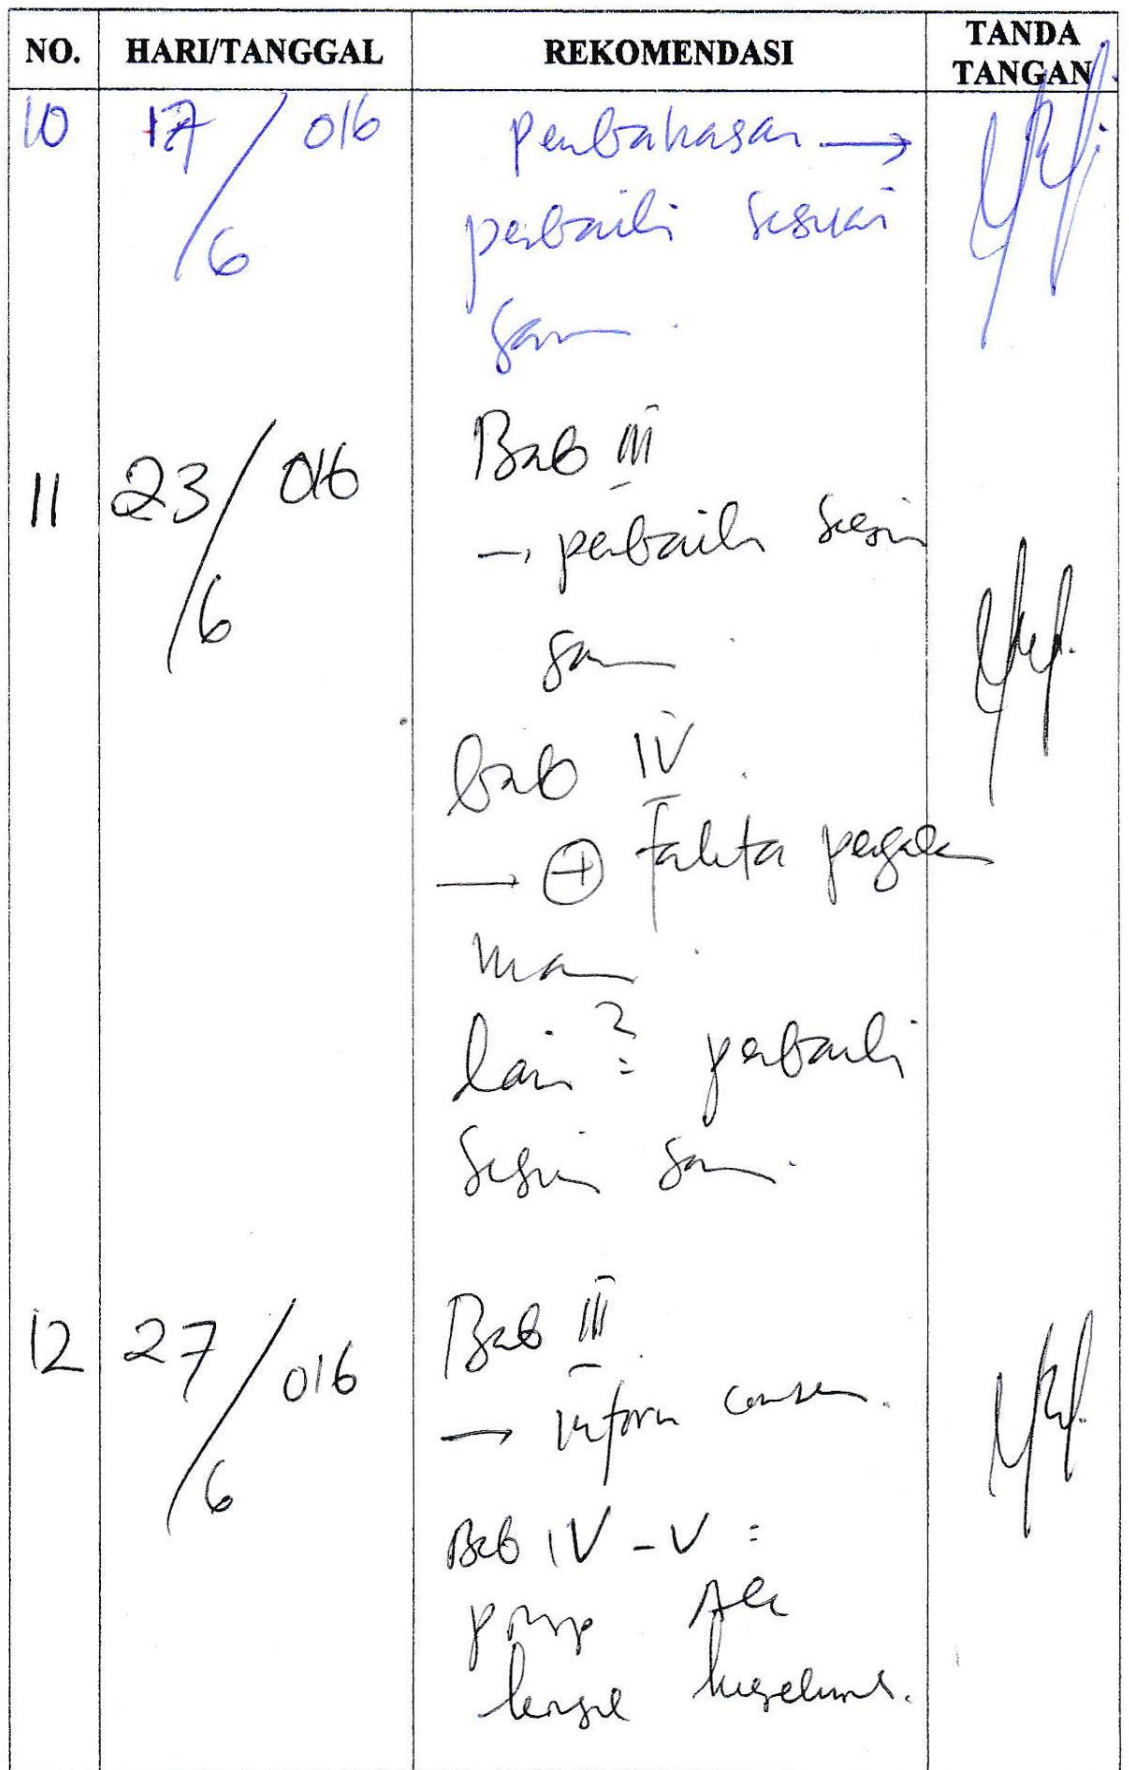 NO. HARI/TANGGAL REKOMENDASI TANDA TANGAN
10 17/6 016 Pembahasan →
perbaiki sesuai
saran.
11 23/6 016 Bab III
→ perbaiki sesuai
saran.
bab IV
→ + fakta pengala
man.
lain ? perbaiki
sesuai saran.
12 27/6 016 Bab III
→ inform consen.
Bab IV - V :
prinsip Acc